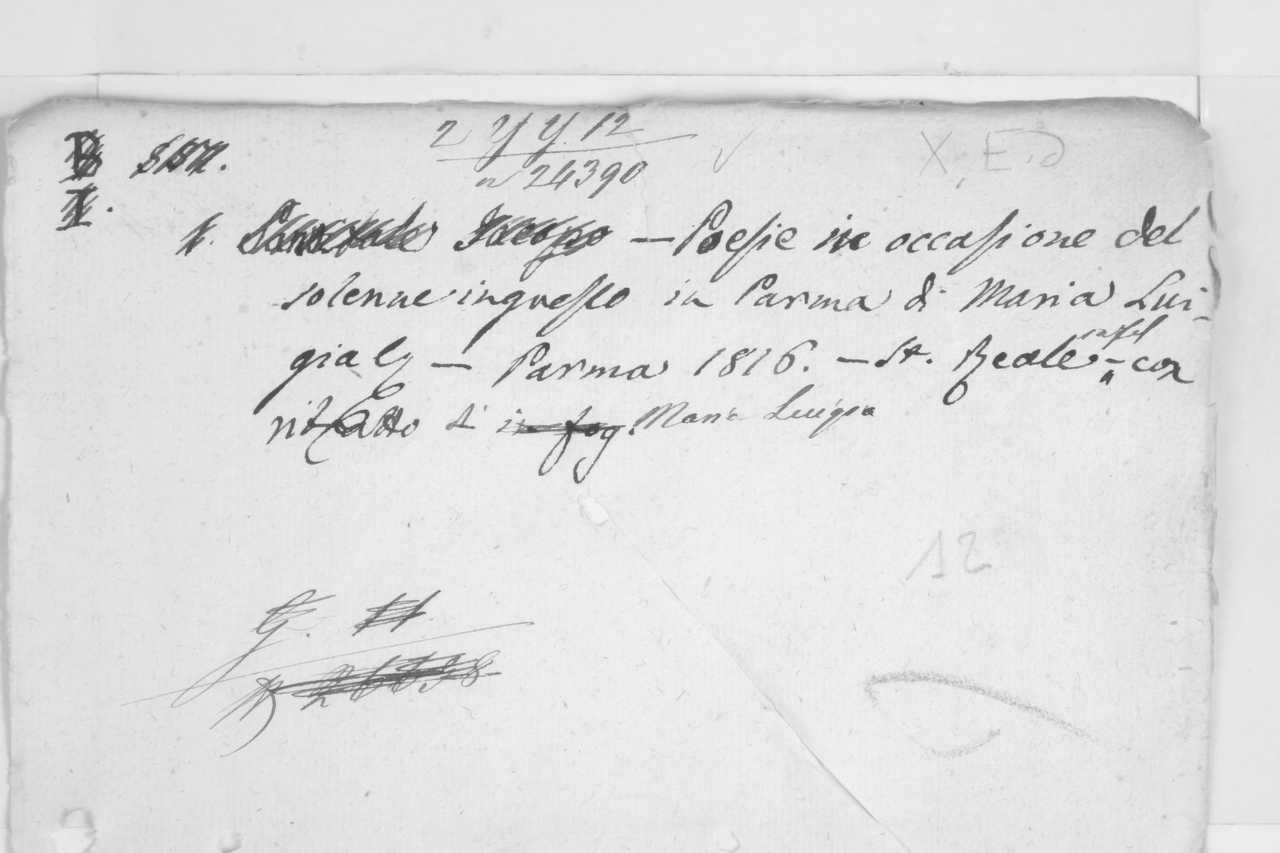 2 Y Y. 12
X, E, d
n 24390
1. Sanvitale Jacopo — Poesie in occasione del
solenne ingresso in Parma di Maria Lui-
gia — Parma 1816. — St. Reale in fol - con
ritratto di in fog. Maria Luigia
12